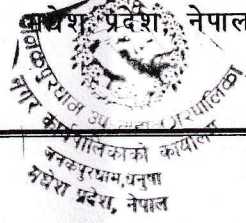 मधेश प्रदेश, नेपाल
जनकपुरधाम उपमहानगरपालिका
नगर कार्यपालिकाको कार्यालय
जनकपुरधाम, धनुषा
मधेश प्रदेश, नेपाल